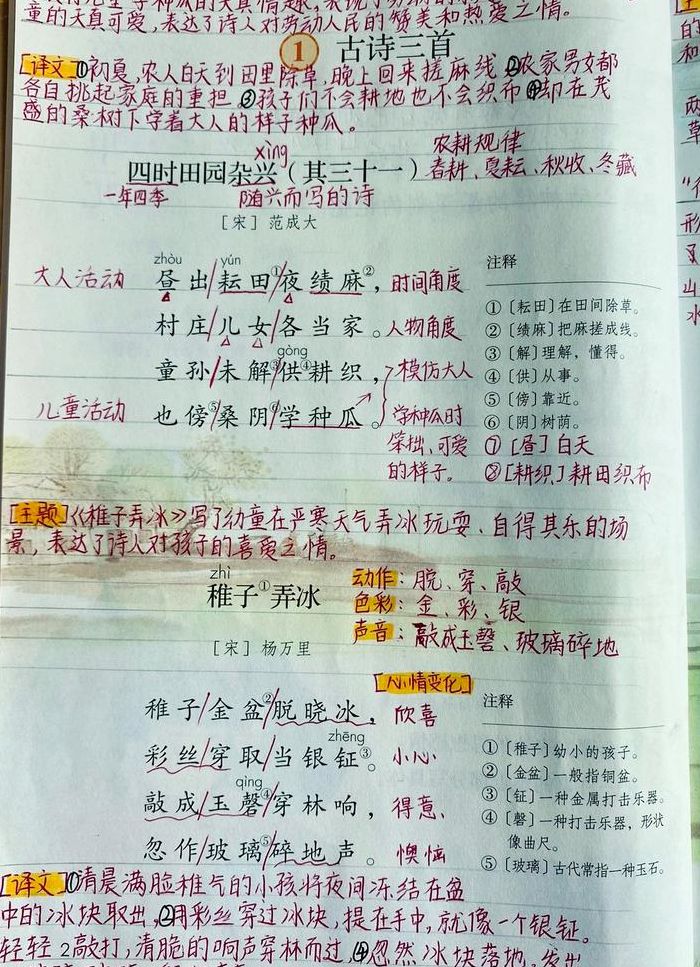 童的天真可爱,表达了诗人对劳动人民的赞美和热爱之情。
1 古诗三首
[译文]①初夏,农人白天到田里除草,晚上回来搓麻线②农家男女都
各自挑起家庭的重担③孩子们不会耕地也不会织布④却在茂
盛的桑树下学着大人的样子种瓜。
农耕规律
xìng
四时田园杂兴(其三十一)
春耕、夏耘、秋收、冬藏
一年四季 随兴而写的诗
[宋] 范成大
zhòu yún
大人活动 昼出/耘田①/夜绩麻②,时间角度
村庄/儿女/各当家。人物角度
gòng
童孙/未解③/供④耕织,模仿大人
儿童活动 也傍⑤/桑阴⑥/学种瓜。学种瓜时
笨拙、可爱
的样子。
注释
①〔耘田〕在田间除草。
②〔绩麻〕把麻搓成线。
③〔解〕理解,懂得。
④〔供〕从事。
⑤〔傍〕靠近。
⑥〔阴〕树荫。
⑦[昼]白天
⑧[耕织]耕田织布
[主题]《稚子弄冰》写了幼童在严寒天气弄冰玩耍、自得其乐的场
景,表达了诗人对孩子的喜爱之情。
zhì
稚子①弄冰
动作:脱、穿、敲
色彩:金、彩、银
声音:敲成玉磬、玻璃碎地
[宋] 杨万里
[心情变化]
稚子/金盆②/脱晓冰,欣喜
zhēng
彩丝/穿取/当银钲③。小心
qìng
敲成/玉磬④/穿林响,得意、
忽作/玻璃⑤/碎地声。懊恼
注释
①〔稚子〕幼小的孩子。
②〔金盆〕一般指铜盆。
③〔钲〕一种金属打击乐器。
④〔磬〕一种打击乐器,形状
像曲尺。
⑤〔玻璃〕古代常指一种玉石。
[译文]①清晨满脸稚气的小孩将夜间冻结在盆
中的冰块取出,②用彩丝穿过冰块,提在手中,就像一个银钲。
轻轻敲打,清脆的响声穿林而过,④忽然冰块落地,发出